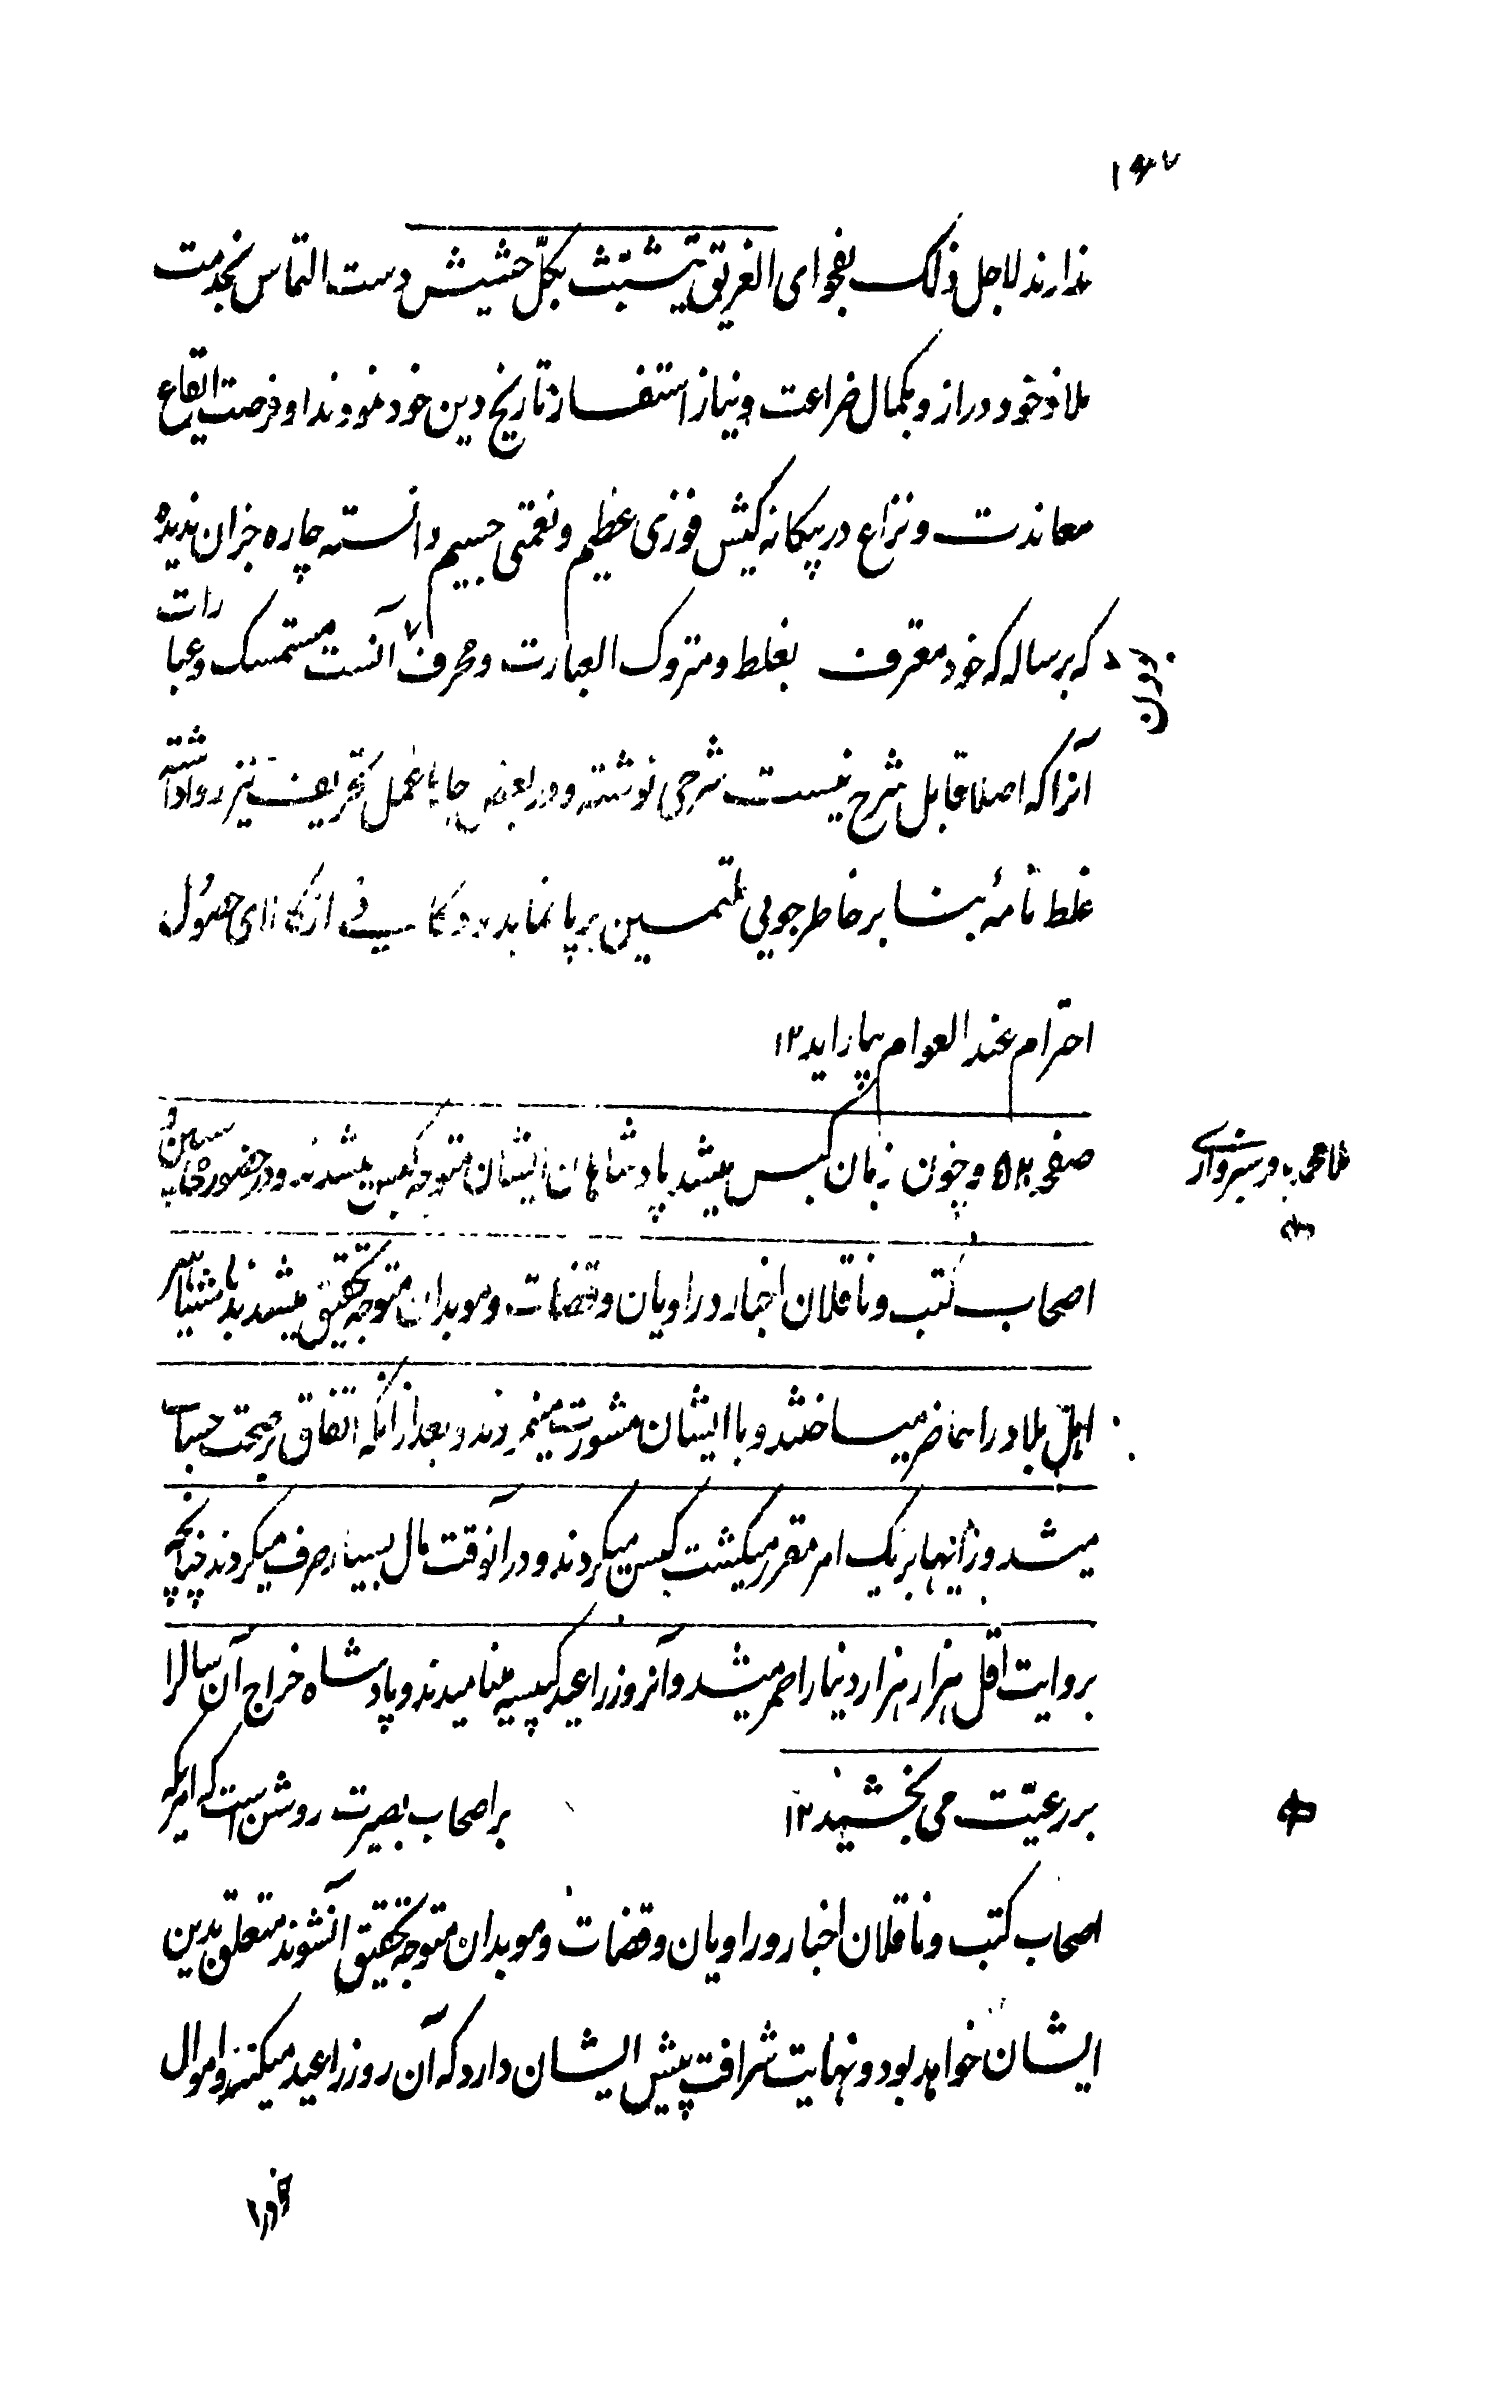 ۱۶۷
ندارند لاجل ذلک بفحوای الغریق یتشبّث بکلّ حشیش دست التماس بخدمت
ملاذ خود دراز و بکمال ضراعت و نیاز استفسار تاریخ دین خود نمودند او فرصت ایقاع
معاندت و نزاع در بیکانه کیش فوزی عظیم و نعمتی جسیم دانسته چاره جز ان ندیده
که بر ساله که خود معترف بغلط و متروک العبارت و محرف آنست مستمسک و عبارات
آنرا که اصلا قابل شرح نیست شرحی نوشته و در بعض جاها عمل تحریف نیز روا داشته
غلط نامهٔ بنا بر خاطر جویی ملتمسین برپا نماید و دکا از کالای حصول
احترام عند العوام بیاراید ۱۲
صفحه ۵۲ و چون زمان کبس میشد پادشاهان ایشان متوجه کبس میشدند و در حضور محاسبین و
ملا محمد باقر سبزواری
اصحاب کتب و ناقلان اخبار و راویان و قضات و موبدان متوجه تحقیق میشدند تا مشاهیر
اهل بلاد را حاضر میساختند و با ایشان مشورت مینمودند و بعد از انکه اتفاق بر صحت حساب
میشد و رایها بر یک امر مقرر میکشت کبس میکردند و در آنوقت مال بسیار صرف میکردند چنانچه
بروایت اقل هزار هزار دینار اصمر میشد و آنروز را عید کبیسه مینامیدند و پادشاه خراج آن سال را
بر رعیّت می بخشیند ۱۲ بر اصحاب بصیرت روشن است که امریکه
اصحاب کتب و ناقلان اخبار و راویان و قضات و موبدان متوجه تحقیق آنشوند متعلق بدین
ایشان خواهد بود و نهایت شرافت پیش ایشان دارد که آن روز را عید میکنند و اموال